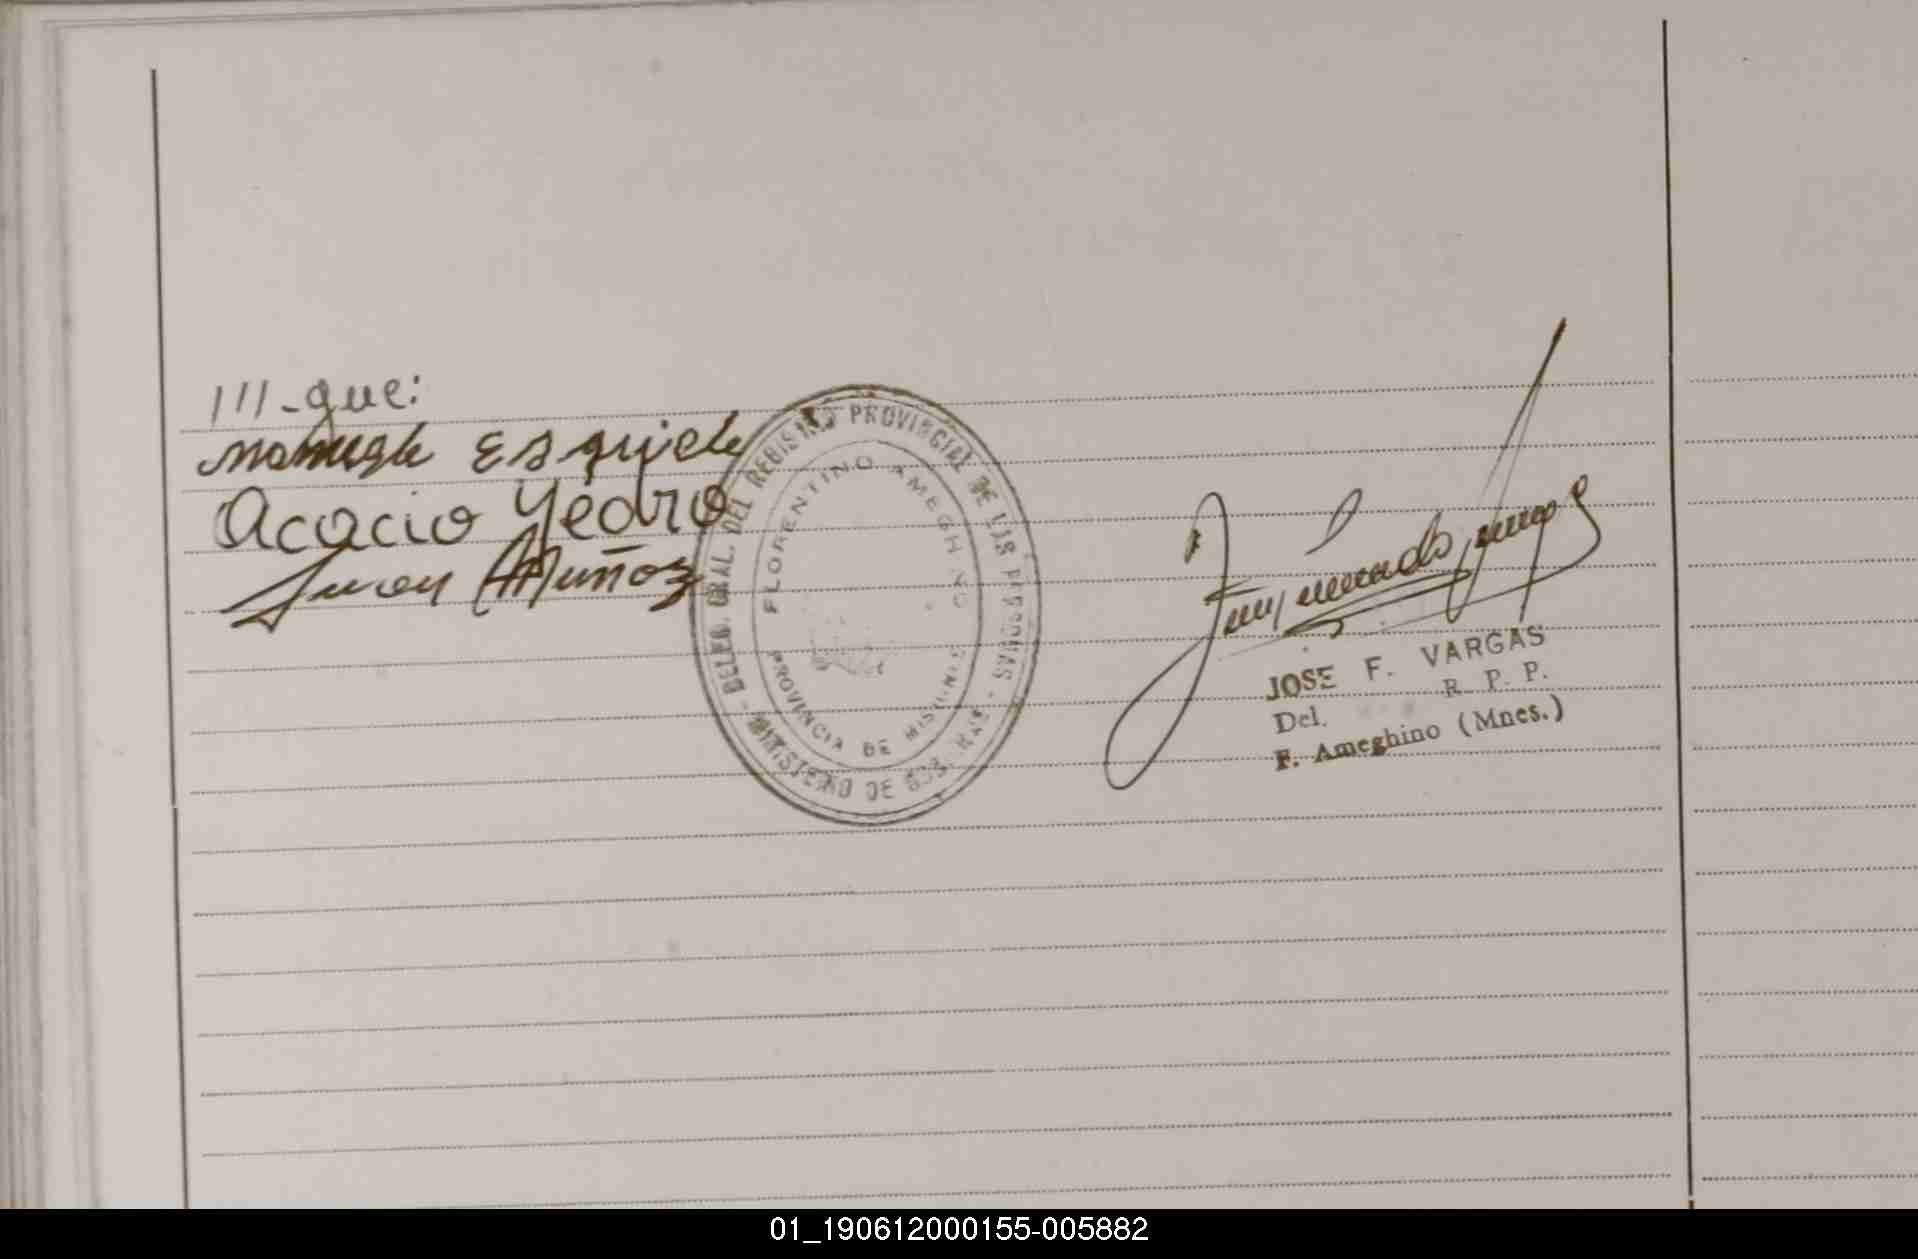 111-que:
Acacio Yedro
Juan Muñoz
DELEG. GRAL. DEL REGISTRO PROVINCIAL DE LAS PERSONAS -
FLORENTINO AMEGHINO
PROVINCIA DE MISIONES
MINISTERIO DE
JOSE F. VARGAS
Del. R. P. P.
F. Ameghino (Mnes.)
01_190612000155-005882